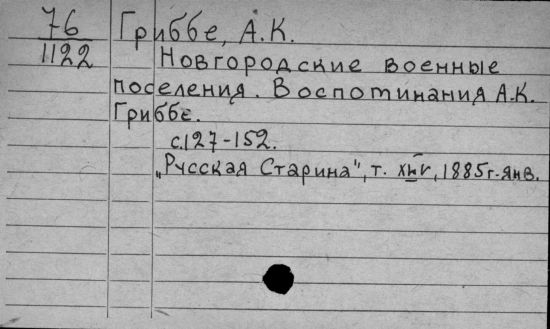 76 Гриббе, А.К.
1122 Новгородские военные
поселения. Воспоминания А.К.
Гриббе.
с.127-152.
„Русская Старина", т. , 1885г.янв.